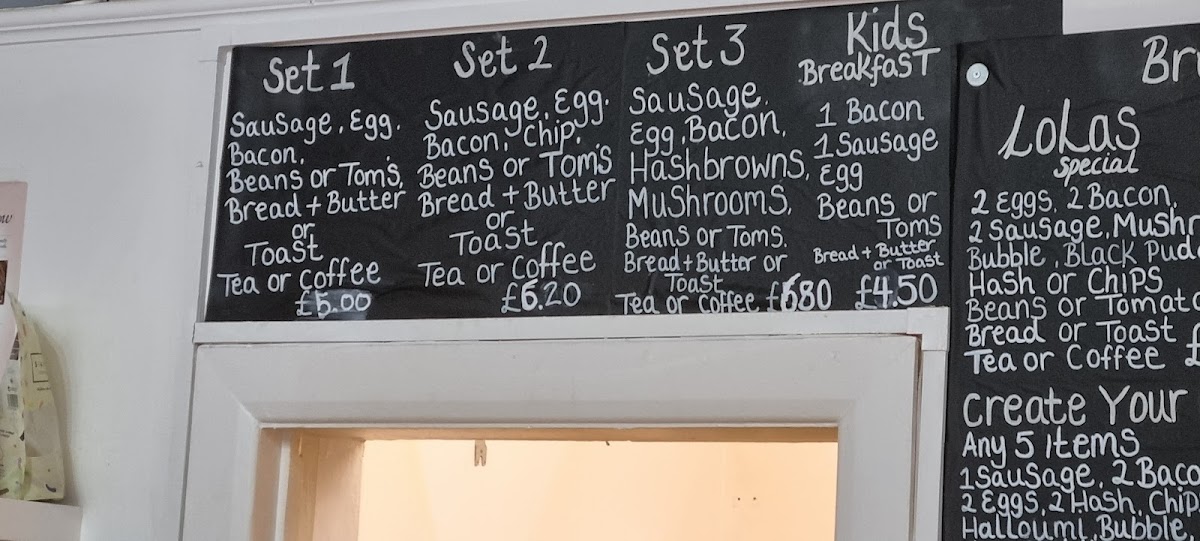 Set 1
Sausage, Egg.
Bacon,
Beans or Tom's,
Bread + Butter
or
Toast
Tea or Coffee
£5.00
Set 2
Sausage, Egg.
Bacon, Chip.
Beans or Tom's
Bread + Butter
or
Toast
Tea or Coffee
£6.20
Set 3
Sausage.
Egg, Bacon,
Hashbrowns,
Mushrooms,
Beans or Toms.
Bread + Butter or
Toast
Tea or Coffee £6.80
Kids
Breakfast
1 Bacon
1 Sausage
Egg
Beans or
Toms
Bread + Butter
or Toast
£4.50
Br
LoLas
special
2 Eggs, 2 Bacon,
2 Sausage, Mushr
Bubble, Black Pud
Hash or Chips
Beans or Tomat
Bread or Toast
Tea or Coffee £
Create Your
Any 5 Items
1 Sausage, 2 Baco
2 Eggs, 2 Hash, Chip
Halloumi, Bubble,